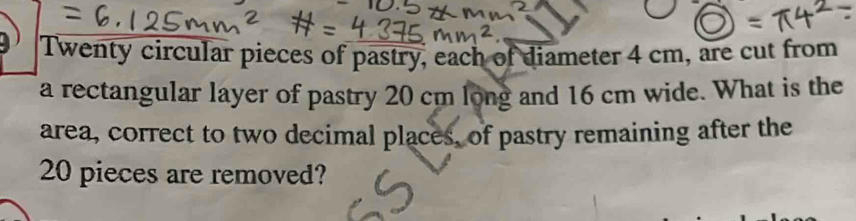 = 6.125mm² # = 4.375 mm². = π4²=
10.5 mm²
9 Twenty circular pieces of pastry, each of diameter 4 cm, are cut from
a rectangular layer of pastry 20 cm long and 16 cm wide. What is the
area, correct to two decimal places, of pastry remaining after the
20 pieces are removed?